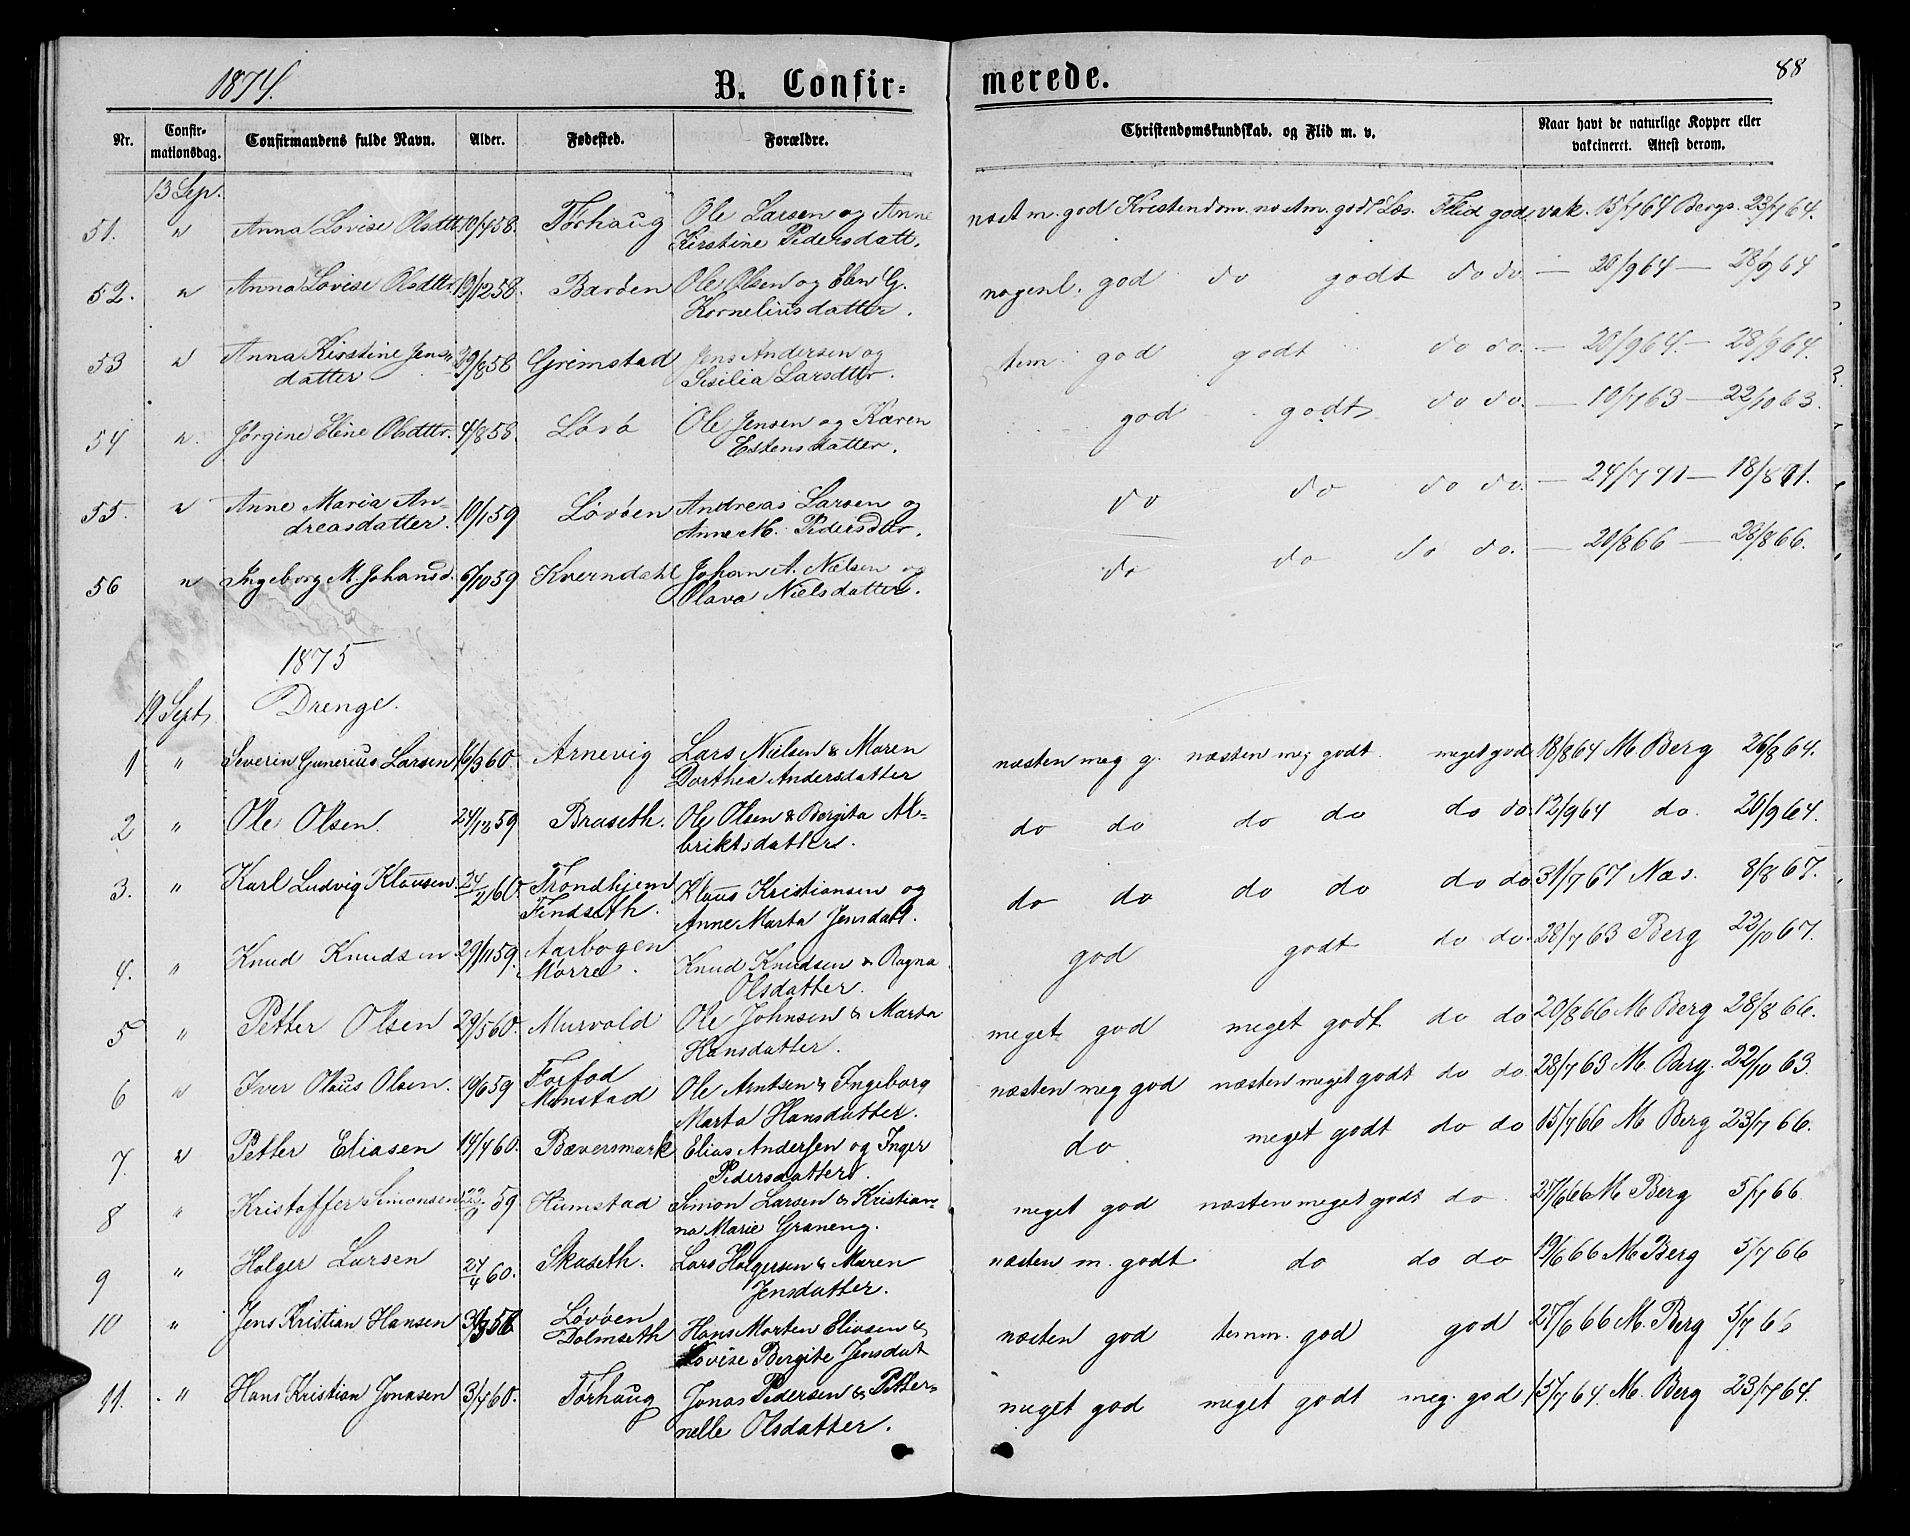 1874.
B. Confir-
merede.
88
Nr.
Confir-
mationsdag.
Confirmandens fulde Navn.
Alder.
Fødested.
Forældre.
Christendomskundskab. og Flid m. v.
Naar havt de naturlige Kopper eller
vakcineret. Attest derom.
13 Sep.
51. " Anna Lovise Olsdttr 10/4 58. Tørhaug Ole Larsen og Anne næst m. god Kristendom. næst m. godt Læs. Flid god, vak. 15/7 64 Bergs. 23/7 64.
Kirstine Pedersdatt.
52. " Anna Lovise Olsdttr. 19/12 58. Barøen Ole Olsen og Elen G. nogenl. god do godt do do. — 20/9 64 — 28/9 64
Korneliusdatter.
53 " Anna Kirstine Jens 29/8 58 Grimstad Jens Andersen og tem. god godt do do. — 20/9 64. — 28/9 64.
datter Sisilia Larsdttr.
54 ". Jørgine Eline Olsdttr. 4/8 58. Løvø Ole Jensen og Karen god godt do do. — 10/7 63 — 22/10 63.
Estensdatter.
55. " Anne Maria An- 10/1 59 Løvøen Andreas Larsen og do do do do. — 24/7 71 — 18/8 71.
dreasdatter. Anne M. Pedersdtr.
56 " Ingeborg M. Johansd. 6/10 59 Kverndahl Johan A. Nilsen og do do do do. — 20/8 66 — 28/8 66.
Olava Nielsdatter.
1875
19 Sept. Drenge.
1 " Severin Gunerius Larsen 16/3 60. Arnevig Lars Nielsen & Maren næsten meg g. næsten meg godt meget god 18/8 64 M Berg 26/8 64.
Dorthea Andersdatter
2 " Ole Olsen. 24/12 59 Braseth. Ole Olsen & Bergita Al- do do do do do do 12/9 64 do. 20/9 64.
briktsdatters.
3. " Karl Ludvig Klausen 24/2 60. Trondhjem Klaus Kristiansen og do do do do do do 31/7 67 Næs. 8/8 67.
Findseth. Anne Marta Jensdatt.
4. " Knud Knudsen 29/11 59. Aarbogen Knud Knudsen & Ragna god godt do do. 28/7 63 Berg 22/10 67.
Mørre. Olsdatter.
5 " Petter Olsen 29/5 60. Murvold Ole Johnsen & Marta meget god meget godt do do 20/8 66 M Berg 28/8 66.
Hansdatter.
6 " Iver Olaus Olsen. 19/6 59 Forfod Ole Arntsen & Ingeborg næsten meg god næsten meget godt do do 28/7 63 M. Berg. 22/10 63.
Monstad Marta Hansdatter.
7. " Petter Eliasen 14/4 60. Bæversmark Elias Andersen og Inger do meget godt do do 15/7 66 M Berg 23/7 66.
Pedersdatters.
8 " Kristoffer Simonsen 22/9 59 Humstad Simon Larsen & Kristian- meget god næsten meget godt do. 27/6 66 M Berg 5/7 66.
na Marie Graneng.
9 " Holger Larsen 24/4 60. Skaseth. Lars Holgersen & Maren næsten m. godt do do do 19/6 66 M Berg 5/7 66
Jensdatter.
10 " Jens Kristian Hansen Løvøen Hans Morten Eliasen & næsten god temm. god god 27/6 66 M. Berg 5/7 66
Dolmseth Lovise Bergite Jensdat
11. " Hans Kristian Jonasen 3/4 60. Tørhaug Jonas Pedersen & Petter- meget god meget godt meg. god 15/7 64. M. Berg 23/7 64.
nelle Olsdatter.